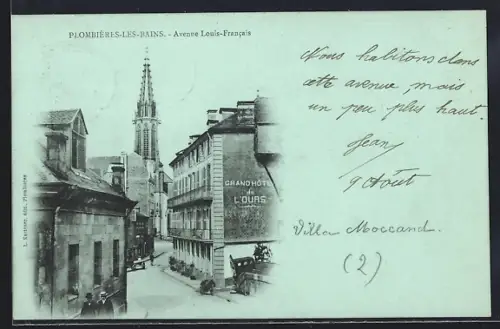 PLOMBIÈRES-LES-BAINS. - Avenue Louis-Français
Nous habitons dans
cette avenue, mais
un peu plus haut.
Jean
9 Août
Villa Moccand.
(2)
GRAND HÔTEL
de
L'OURS